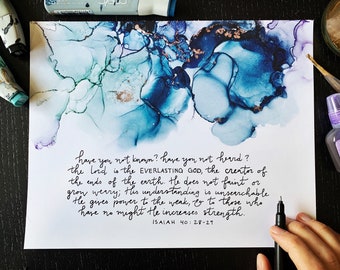 have you not known? have you not heard?
the Lord is the EVERLASTING GOD, the creator of
the ends of the earth. He does not faint or
grow weary; His understanding is unsearchable
He gives power to the weak, & to those who
have no might He increases strength.
ISAIAH 40:28-29